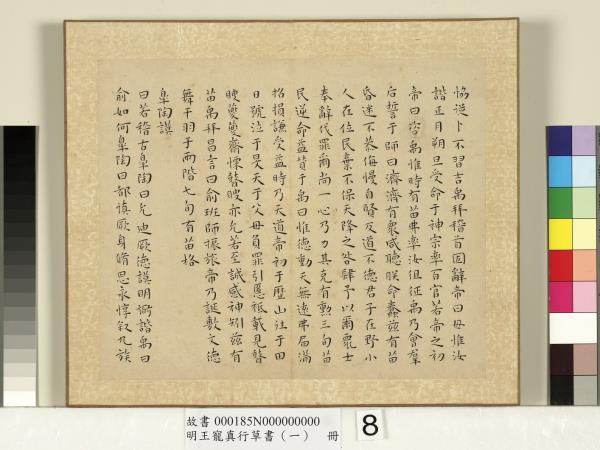 協從卜不習吉禹拜稽首固辭帝曰毋惟汝
諧正月朔旦受命于神宗率百官若帝之初
帝曰咨禹惟時有苗弗率汝徂征禹乃會羣
后誓于師曰濟濟有衆咸聽朕命蠢茲有苗
昏迷不恭侮慢自賢反道不德君子在野小
人在位民棄不保天降之咎肆予以爾衆士
奉辭伐罪爾尚一心乃力其克有勳三旬苗
民逆命益贊于禹曰惟德動天無遠弗屆滿
招損謙受益時乃天道帝初于歷山往于田
日號泣于旻天于父母負罪引慝祗載見瞽
瞍夔夔齋慄瞽瞍亦允若至諴感神矧茲有
苗禹拜昌言曰俞班師振旅帝乃誕敷文德
舞干羽于兩階七旬有苗格
皋陶謨
曰若稽古皋陶曰允迪厥德謨明弼諧禹曰
俞如何皋陶曰都慎厥身脩思永惇叙九族
故書 000185N000000000
明王寵真行草書（一） 冊
8